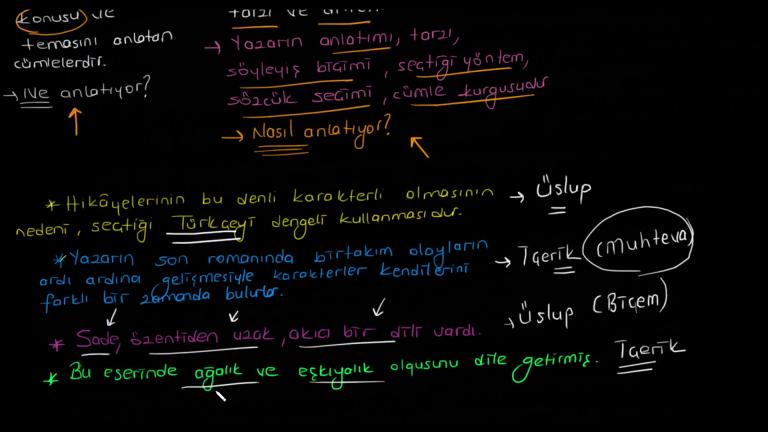 konusu ve
temasını anlatan
cümlelerdir.
→ Ne anlatıyor?
tarzı ve
→ Yazarın anlatımı, tarzı,
söyleyiş biçimi, seçtiği yöntem,
sözcük seçimi, cümle kurgusudur.
→ Nasıl anlatıyor?
* Hikâyelerinin bu denli karakterli olmasının → Üslup
nedeni, seçtiği Türkçeyi dengeli kullanmasıdır.
* Yazarın son romanında birtakım olayların → İçerik (Muhteva)
ardı ardına gelişmesiyle karakterler kendilerini
farklı bir zamanda bulurlar.
* Sade, özentiden uzak, akıcı bir dili vardı. → Üslup (Biçem)
* Bu eserinde ağalık ve eşkıyalık olgusunu dile getirmiş. İçerik